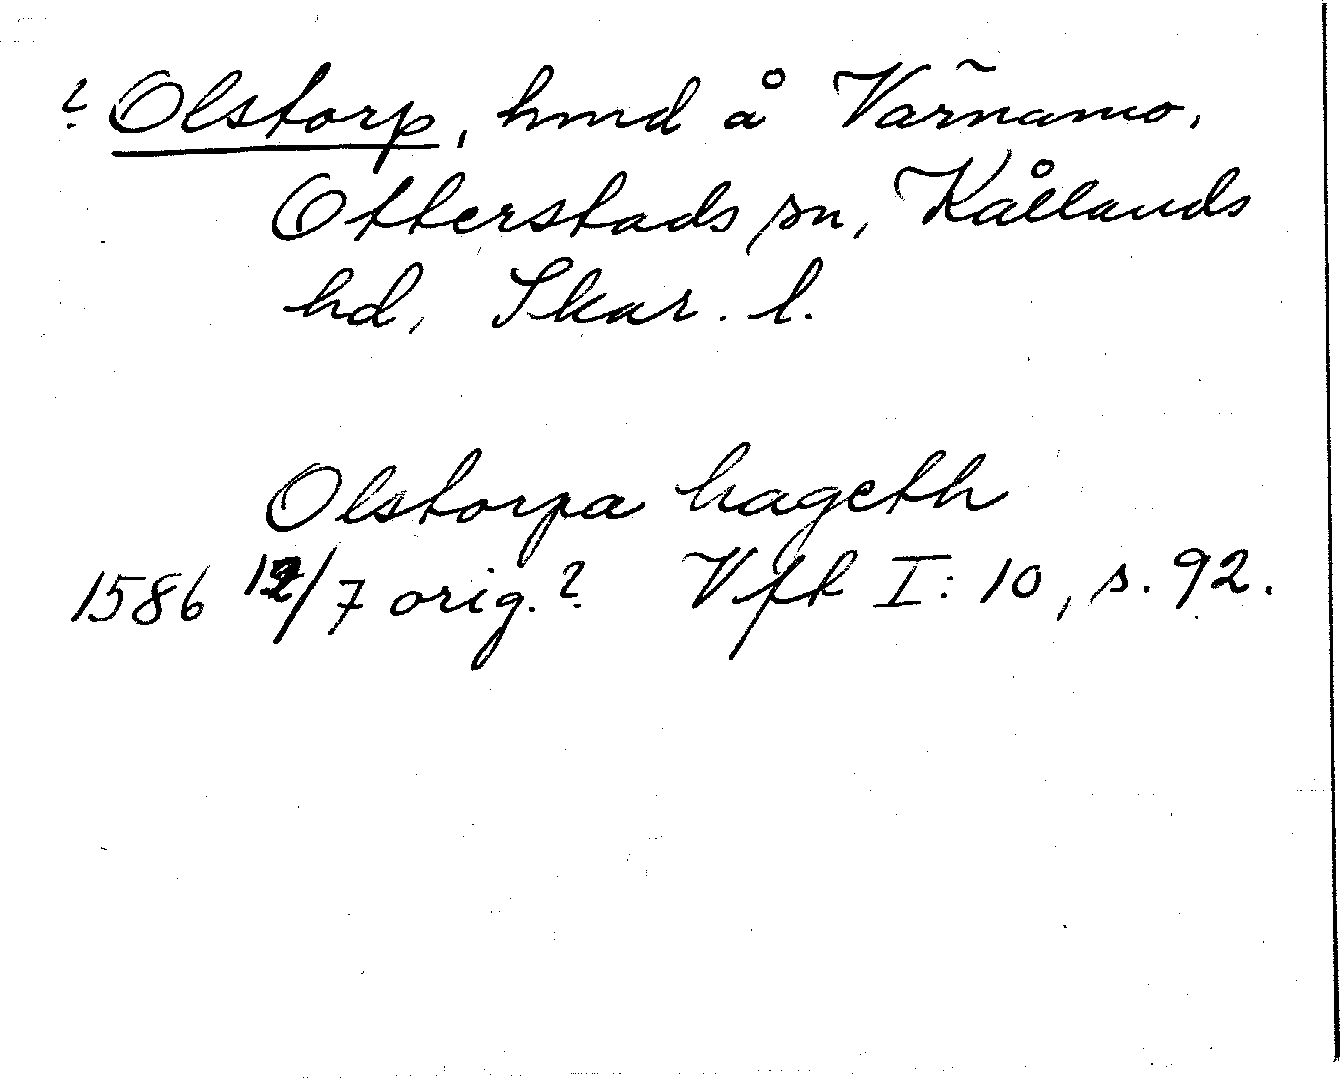 ? Olstorp, hmd å Värnamo,
Otterstads sn, Kållands
hd, Skar. l.
Olstorpa hageth
1586 12/7 orig.? Vfl I: 10, s. 92.